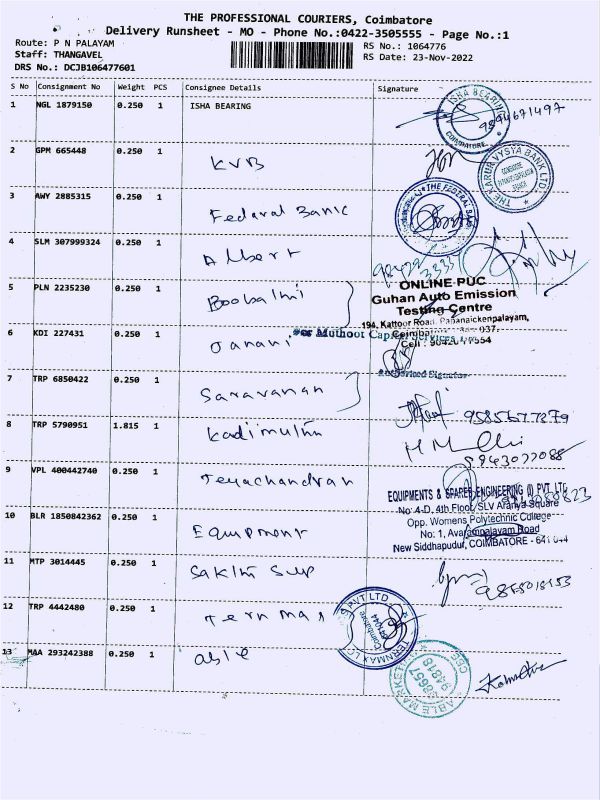 THE PROFESSIONAL COURIERS, Coimbatore
Delivery Runsheet - MO - Phone No.:0422-3505555 - Page No.:1
Route: P N PALAYAM
RS No.: 1064776
Staff: THANGAVEL
RS Date: 23-Nov-2022
DRS No.: DCJB106477601
S No Consignment No Weight PCS Consignee Details Signature
1 NGL 1879150 0.250 1 ISHA BEARING
ISHA BEARING
COIMBATORE
9894671497
2 GPM 665448 0.250 1
KVB
THE KARUR VYSYA BANK LTD
3 AWY 2885315 0.250 1
Federal Bank
THE FEDERAL BANK
4 SLM 307999324 0.250 1
Albert
5 PLN 2235230 0.250 1
Boobalmi
ONLINE PUC
Guhan Auto Emission
Testing Centre
194, Kattoor Road, Papanaickenpalayam,
6 KDI 227431 0.250 1
Janani
For Muthoot Capital Services
Authorised Signator
7 TRP 6850422 0.250 1
Saravanan
8 TRP 5790951 1.815 1
9 VPL 400442740 0.250 1
Jeyachandran
EQUIPMENTS & SPARES ENGINEERING (I) PVT. LTD.
No: 4-D, 4th Floor, SLV Aranya Square
Opp. Womens Polytechnic College
No: 1, Avarampalayam Road
New Siddhapudur, COIMBATORE - 641 044
10 BLR 1850842362 0.250 1
Equipment
11 MTP 3014445 0.250 1
Sakthi Sup
12 TRP 4442480 0.250 1
Ternmax
PVT LTD
Coimbatore
13 MAA 293242388 0.250 1
able
ABLE MARKET